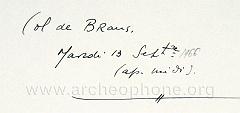 Col de Braus.
Mardi 13 Sept 1966
(ap. midi).
www.archeophone.org